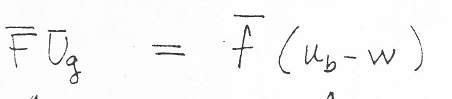 F̿ Ū_g = f̅ (u_b - w)